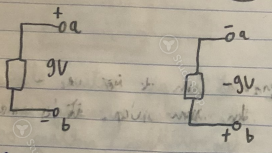 + a
9V
- b
- a
-9V
+ b